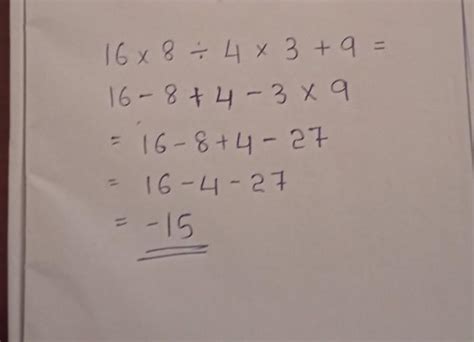 16 × 8 ÷ 4 × 3 + 9 =
16 - 8 + 4 - 3 × 9
= 16 - 8 + 4 - 27
= 16 - 4 - 27
= -15